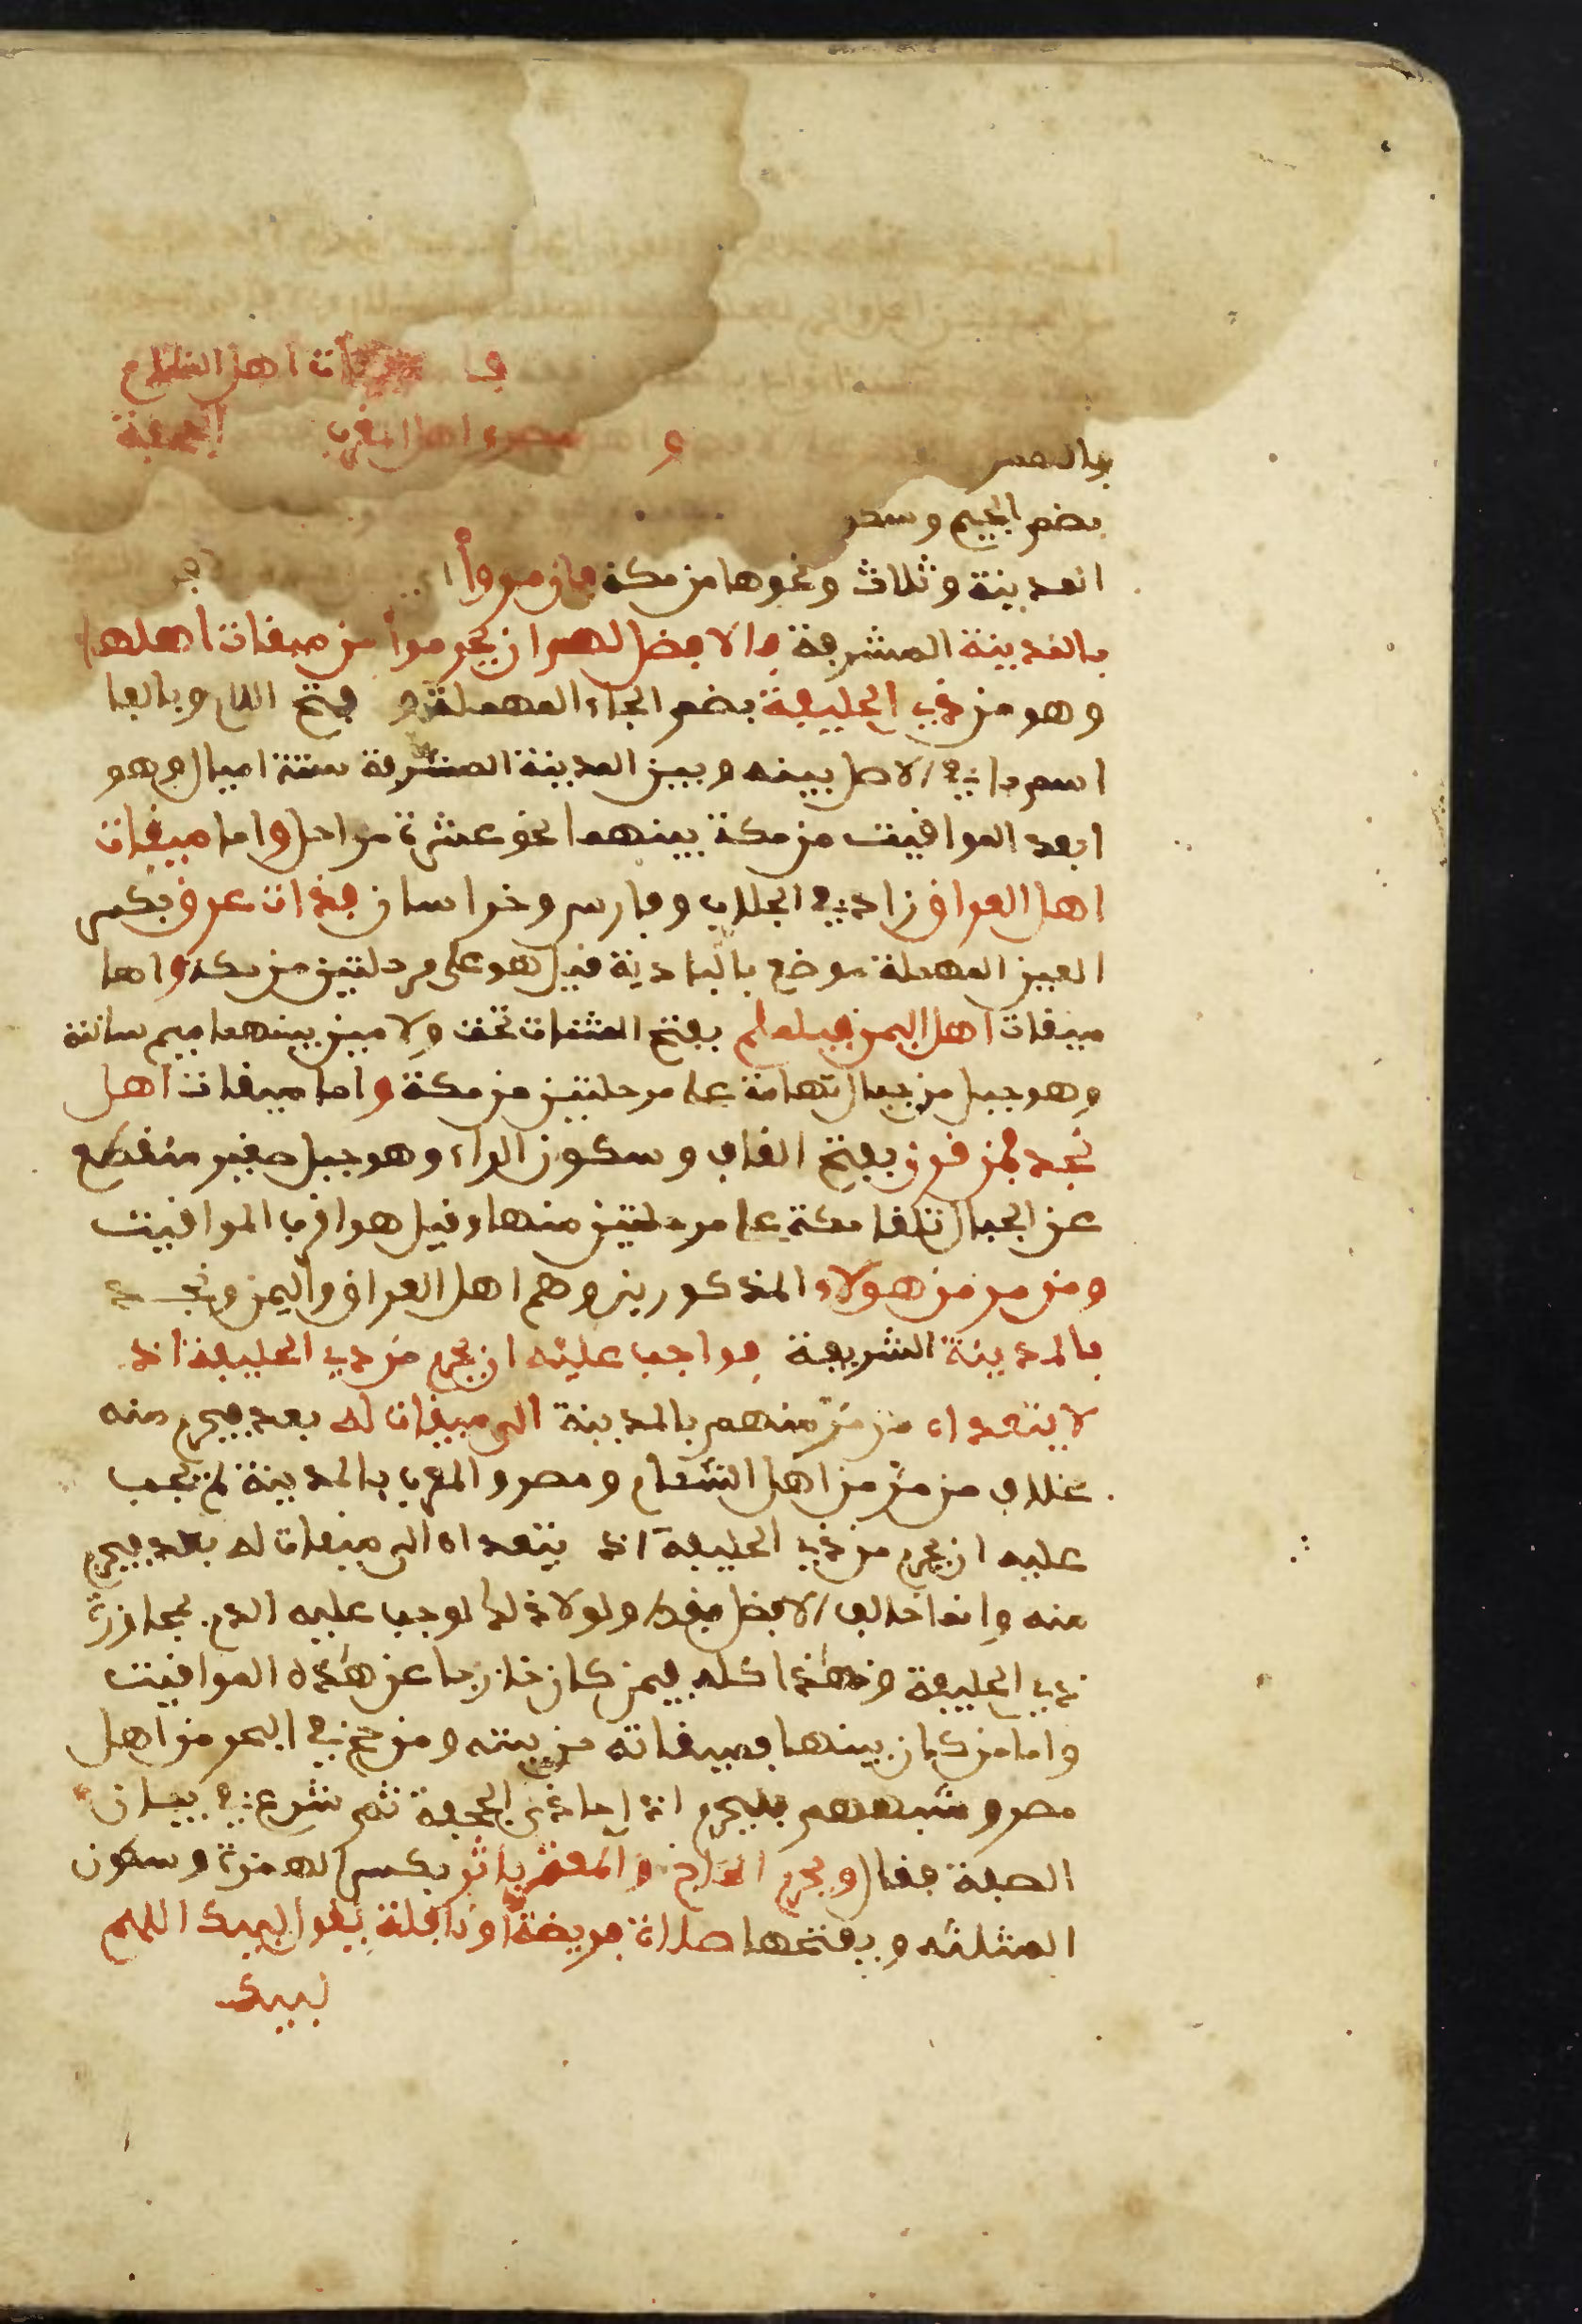 أهل الشام
و مصر وأهل المغرب الجحفة
بضم الجيم وسكو
المدينة وثلاث ونحوها من مكة فإن مروا
بالمدينة المشرفة فالافضل لهم ان يحرموا من ميقات أهلها
وهو من ذي الحليفة بضم الحاء المهملة و فتح اللام وبالفا
اسم ما في الاصل بينه وبين المدينة المشرفة ستة اميال وهو
ابعد المواقيت من مكة بينهما نحو عشرة مراحل واما ميقات
اهل العراق زاد في الجلاب وفارس وخراسان فذات عرق بكسر
العين المهملة موضع بالبادية قيل هو على مرحلتين من مكة واما
ميقات اهل اليمن فيلملم بفتح المثنات تحت ولامين بينهما ميم ساكنة
وهو جبل من جبال تهامة على مرحلتين من مكة واما ميقات اهل
نجد فمن قرن بفتح القاف وسكون الراء وهو جبل صغير منقطع
عن الجبال تلقا مكة على مرحلتين منها وقيل هو اقرب المواقيت
ومن مر من هولاء المذكورين وهم اهل العراق واليمن ونجد
بالمدينة الشريفة فواجب عليه ان يحرم من ذي الحليفة اذ
لا يتعداه من مر منهم بالمدينة الى ميقات له بعد فيحرم منه
بخلاف من مر من اهل الشام ومصر والمغرب بالمدينة لم يجب
عليه ان يحرم من ذي الحليفة اذ يتعداه الى ميقات له بعد فيحرم
منه وانما خالف الافضل فقط ولولا ذلك لوجب عليه الدم بمجاوزة
ذي الحليفة وهذا كله فيمن كان خارجا عن هذه المواقيت
واما من كان بينها فميقاته من بيته ومن حج في البحر من اهل
مصر وشبههم فليحرم اذا حاذى الجحفة ثم شرع في بيان
الصفة فقال ويحرم الحاج او المعتمر باثر بكسر الهمزة وسكون
المثلثه وبفتحها صلاة فريضة او نافلة يقول لبيك اللهم
لبيك